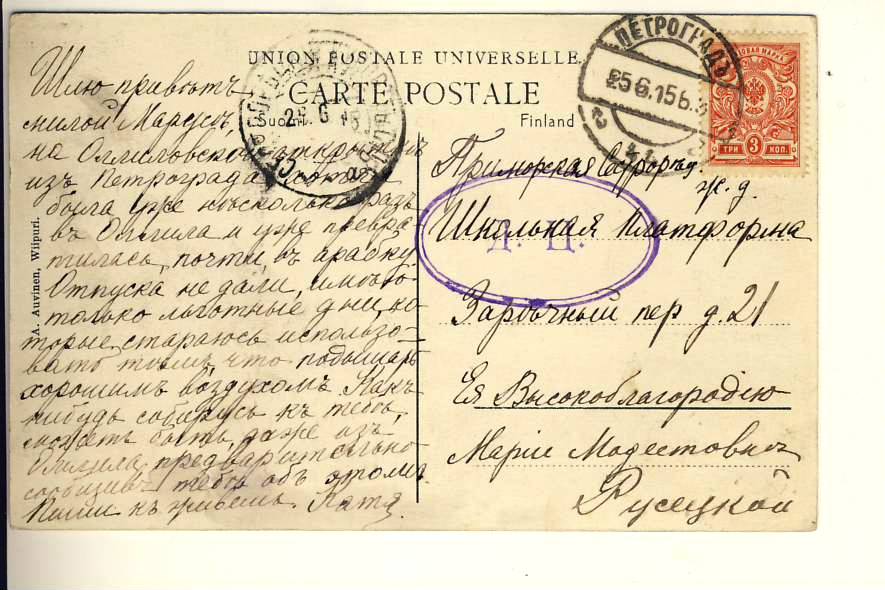 UNION POSTALE UNIVERSELLE.
CARTE POSTALE
Suomi Finland
ПЕТРОГРАДЪ
25 6.15 6
ТРИ 3 КОП.
A. Auvinen, Wiipuri.
Шлю привѣтъ
милой Марусѣ,
на Оллиловской открыткѣ
изъ Петрограда.
была уже нѣсколько разъ
въ Оллила и уже превра
тилась почти въ арабку
Отпуска не дали, имѣю
только льготные дни, ко-
торые стараюсь использо-
вать тѣмъ, что подышать
хорошимъ воздухомъ Какъ
нибудь соберусь къ тебѣ,
можетъ быть даже изъ
Оллила, предварительно
сообщивъ тебѣ объ этомъ
Пиши къ Катя.
Приморская
ж. д.
Школьная Платформа
пер д. 21
Ея Высокоблагородію
Маріи Модестовнѣ
Русецкой